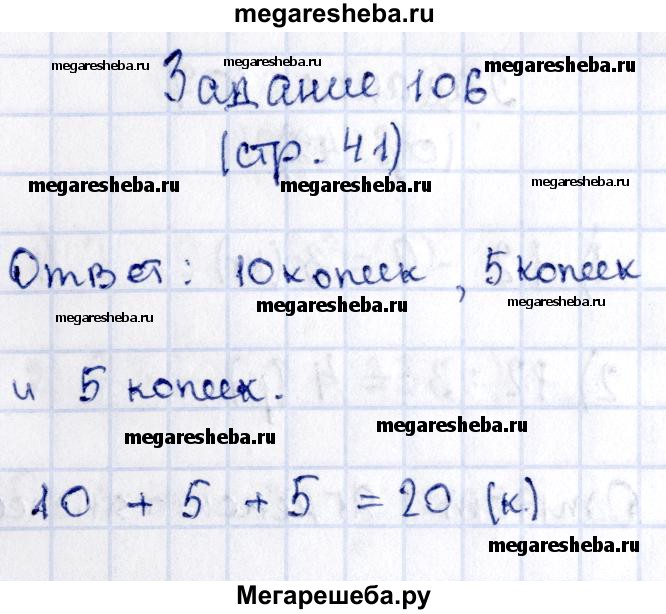 megaresheba.ru
megaresheba.ru megaresheba.ru megaresheba.ru
Задание 106
(стр. 41)
megaresheba.ru megaresheba.ru megaresheba.ru
Ответ: 10 копеек, 5 копеек
megaresheba.ru megaresheba.ru megaresheba.ru
и 5 копеек.
megaresheba.ru megaresheba.ru
10 + 5 + 5 = 20 (к.)
megaresheba.ru
Мегарешеба.ру